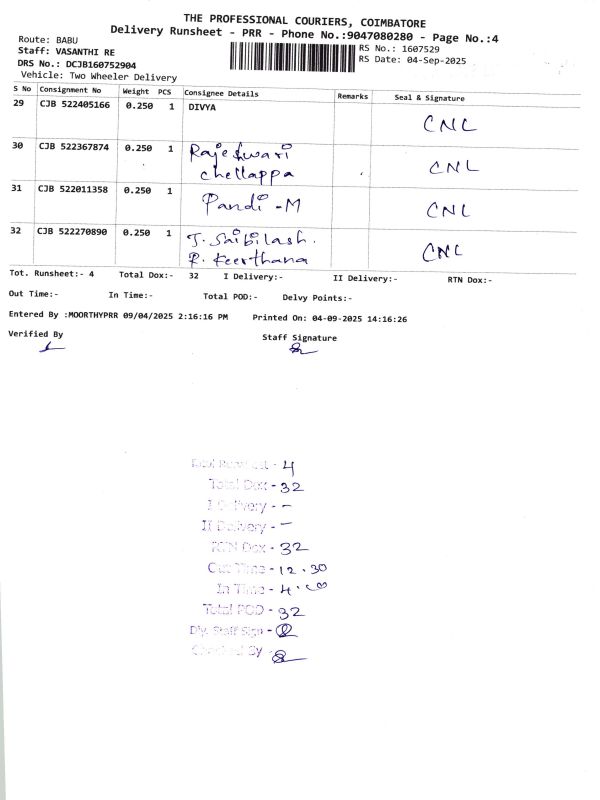 THE PROFESSIONAL COURIERS, COIMBATORE
Delivery Runsheet - PRR - Phone No.:9047080280 - Page No.:4
Route: BABU
RS No.: 1607529
Staff: VASANTHI RE
RS Date: 04-Sep-2025
DRS No.: DCJB160752904
Vehicle: Two Wheeler Delivery
S No Consignment No Weight PCS Consignee Details Remarks Seal & Signature
29 CJB 522405166 0.250 1 DIVYA CNL
30 CJB 522367874 0.250 1 Rajeshwari chellappa CNL
31 CJB 522011358 0.250 1 Pandi -M CNL
32 CJB 522270890 0.250 1 J. Saibilash. R. Keerthana CNL
Tot. Runsheet:- 4 Total Dox:- 32 I Delivery:- II Delivery:- RTN Dox:-
Out Time:- In Time:- Total POD:- Delvy Points:-
Entered By :MOORTHYPRR 09/04/2025 2:16:16 PM Printed On: 04-09-2025 14:16:26
Verified By Staff Signature
Total - 4
Total Dox - 32
I Delivery - -
II Delivery - -
RTN Dox - 32
Out Time - 12.30
In Time - 4.00
Total POD - 32
Dly. Staff Sign -
Checked By -